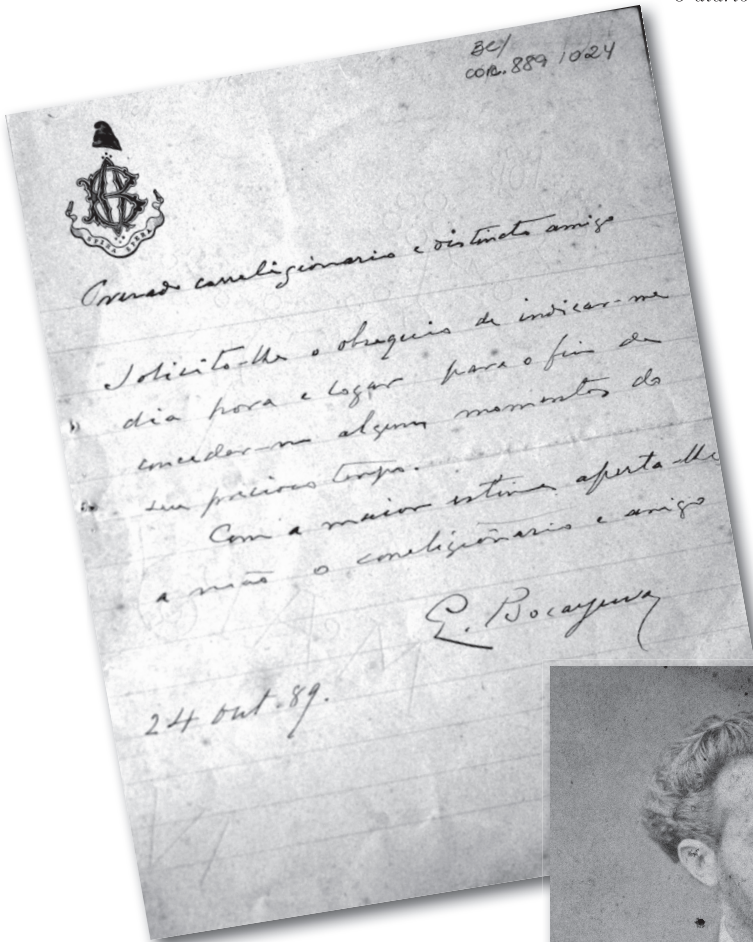 o diario
BC/
COR. 889 1024
Prezado correligionario e distincto amigo
Solicito-lhe o obsequio de indicar-me
dia hora e logar para o fim de
conceder-me alguns momentos do
seu precioso tempo.
Com a maior estima aperta-lhe
a mão o correligionario e amigo
Q. Bocayuva
24 out. 89.